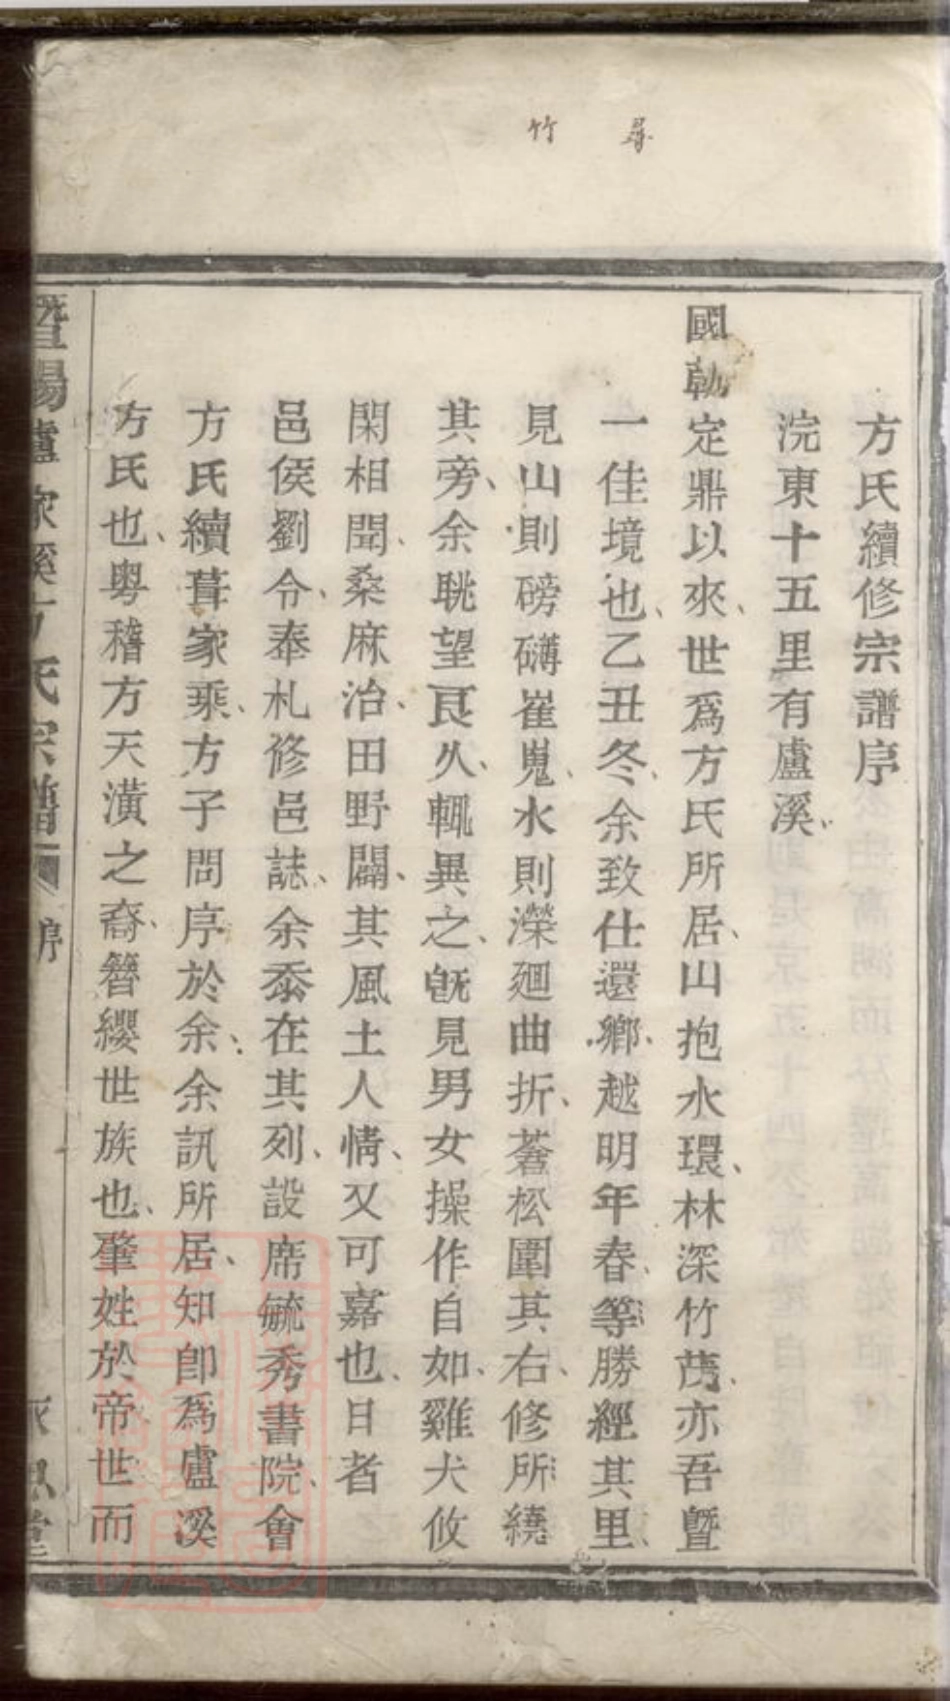 尋 竹
方氏續修宗譜序
浣東十五里有盧溪、
國勅定鼎以來、世爲方氏所居、山抱水環、林深竹茂、亦吾曁
一佳境也、乙丑冬、余致仕還鄉、越明年春、等勝經其里、
見山則磅礴崔嵬、水則濚廻曲折、蒼松圍其右、修所繞
其旁、余眺望良久、輒異之、旣見男女操作自如、雞犬攸
閑相聞、桑麻治、田野闢、其風土人情、又可嘉也、日者
邑侯劉令、奉札修邑誌、余忝在其列、設席毓秀書院、會
方氏續葺家乘、方子問序於余、余訊所居、知卽爲盧溪
方氏也、粤稽方天潢之裔、簪纓世族也、肇姓於帝世而
暨陽盧家溪方氏宗譜 序